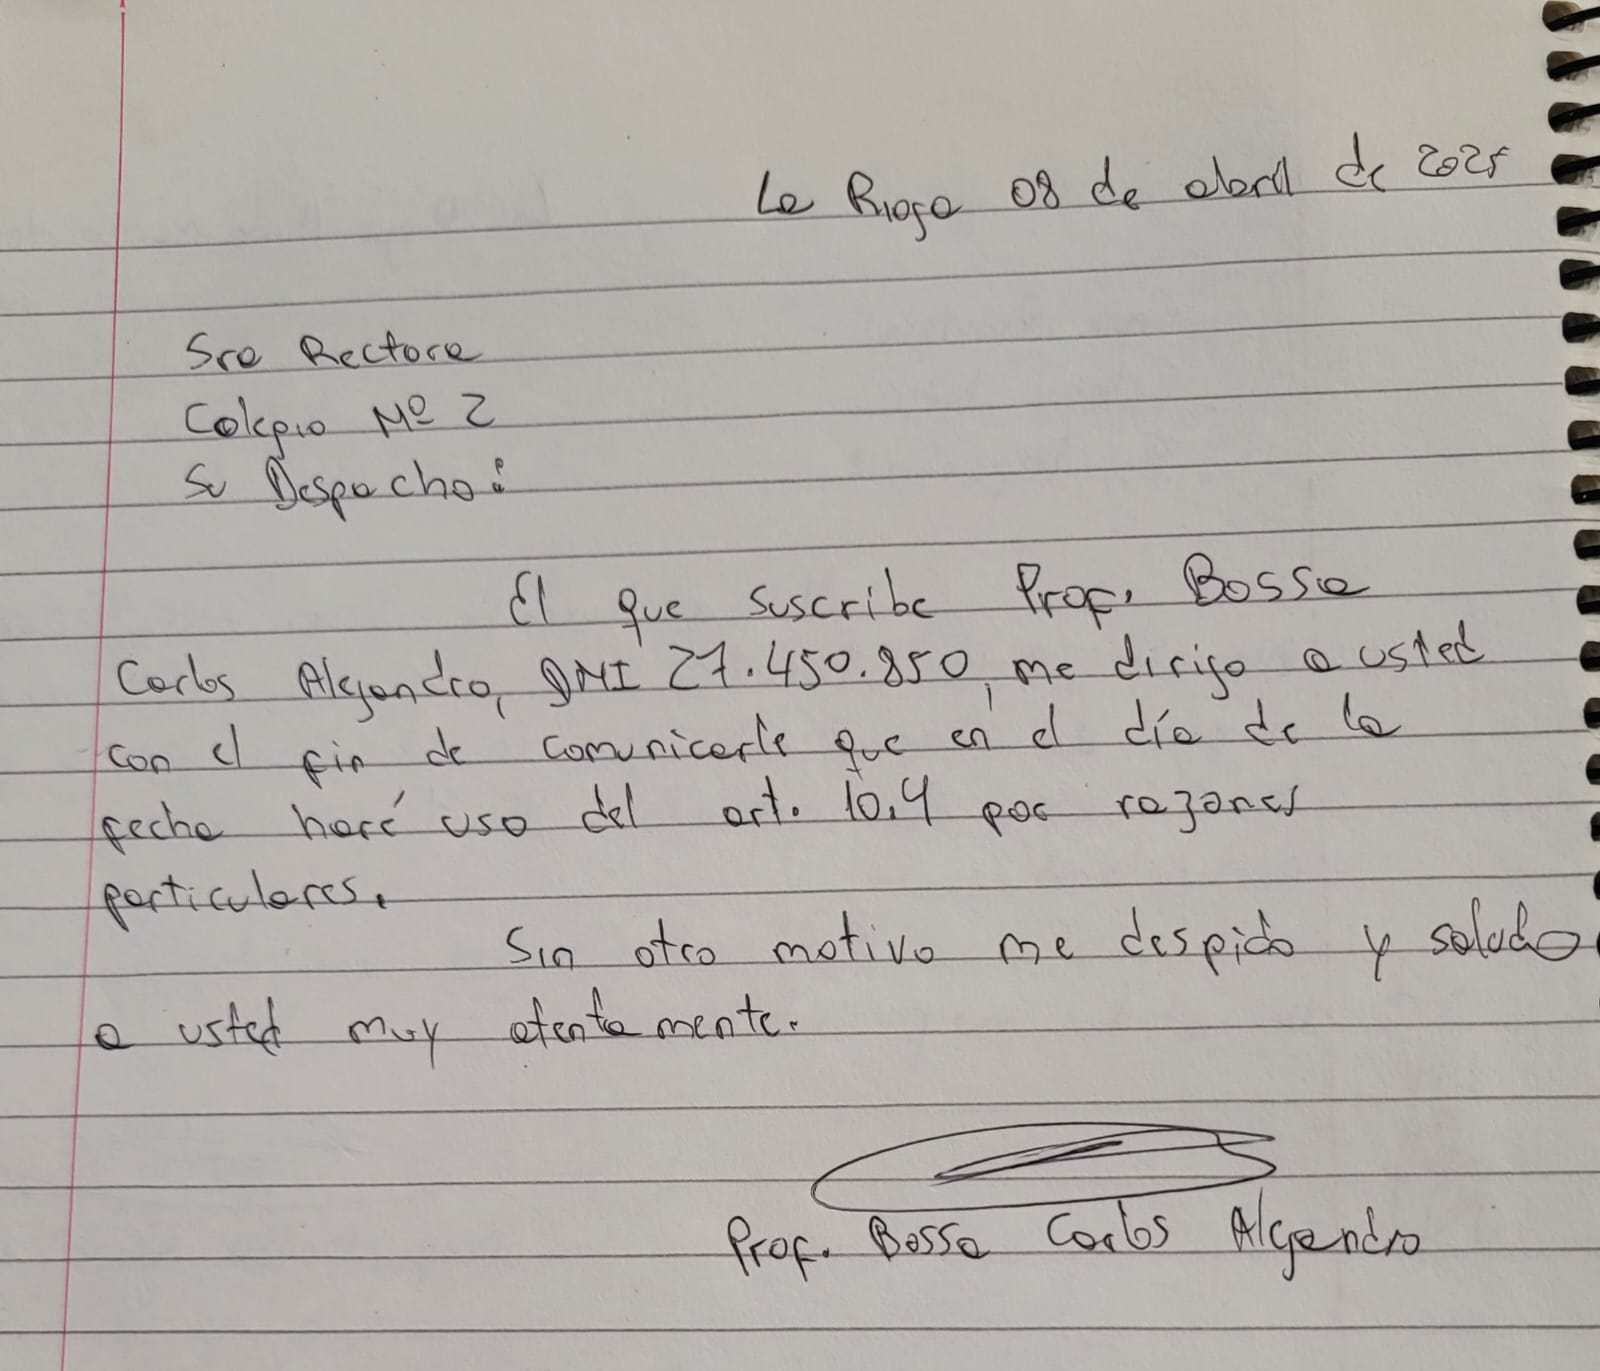 La Rioja 08 de abril de 2025
Sra Rectora
Colegio Nº 2
Su Despacho:
El que suscribe Prof. Bossa
Carlos Alejandro, DNI 27.450.850, me dirijo a usted
con el fin de comunicarle que en el día de la
fecha haré uso del art. 10.4 por razones
particulares.
Sin otro motivo me despido y saludo
a usted muy atentamente.
Prof. Bossa Carlos Alejandro